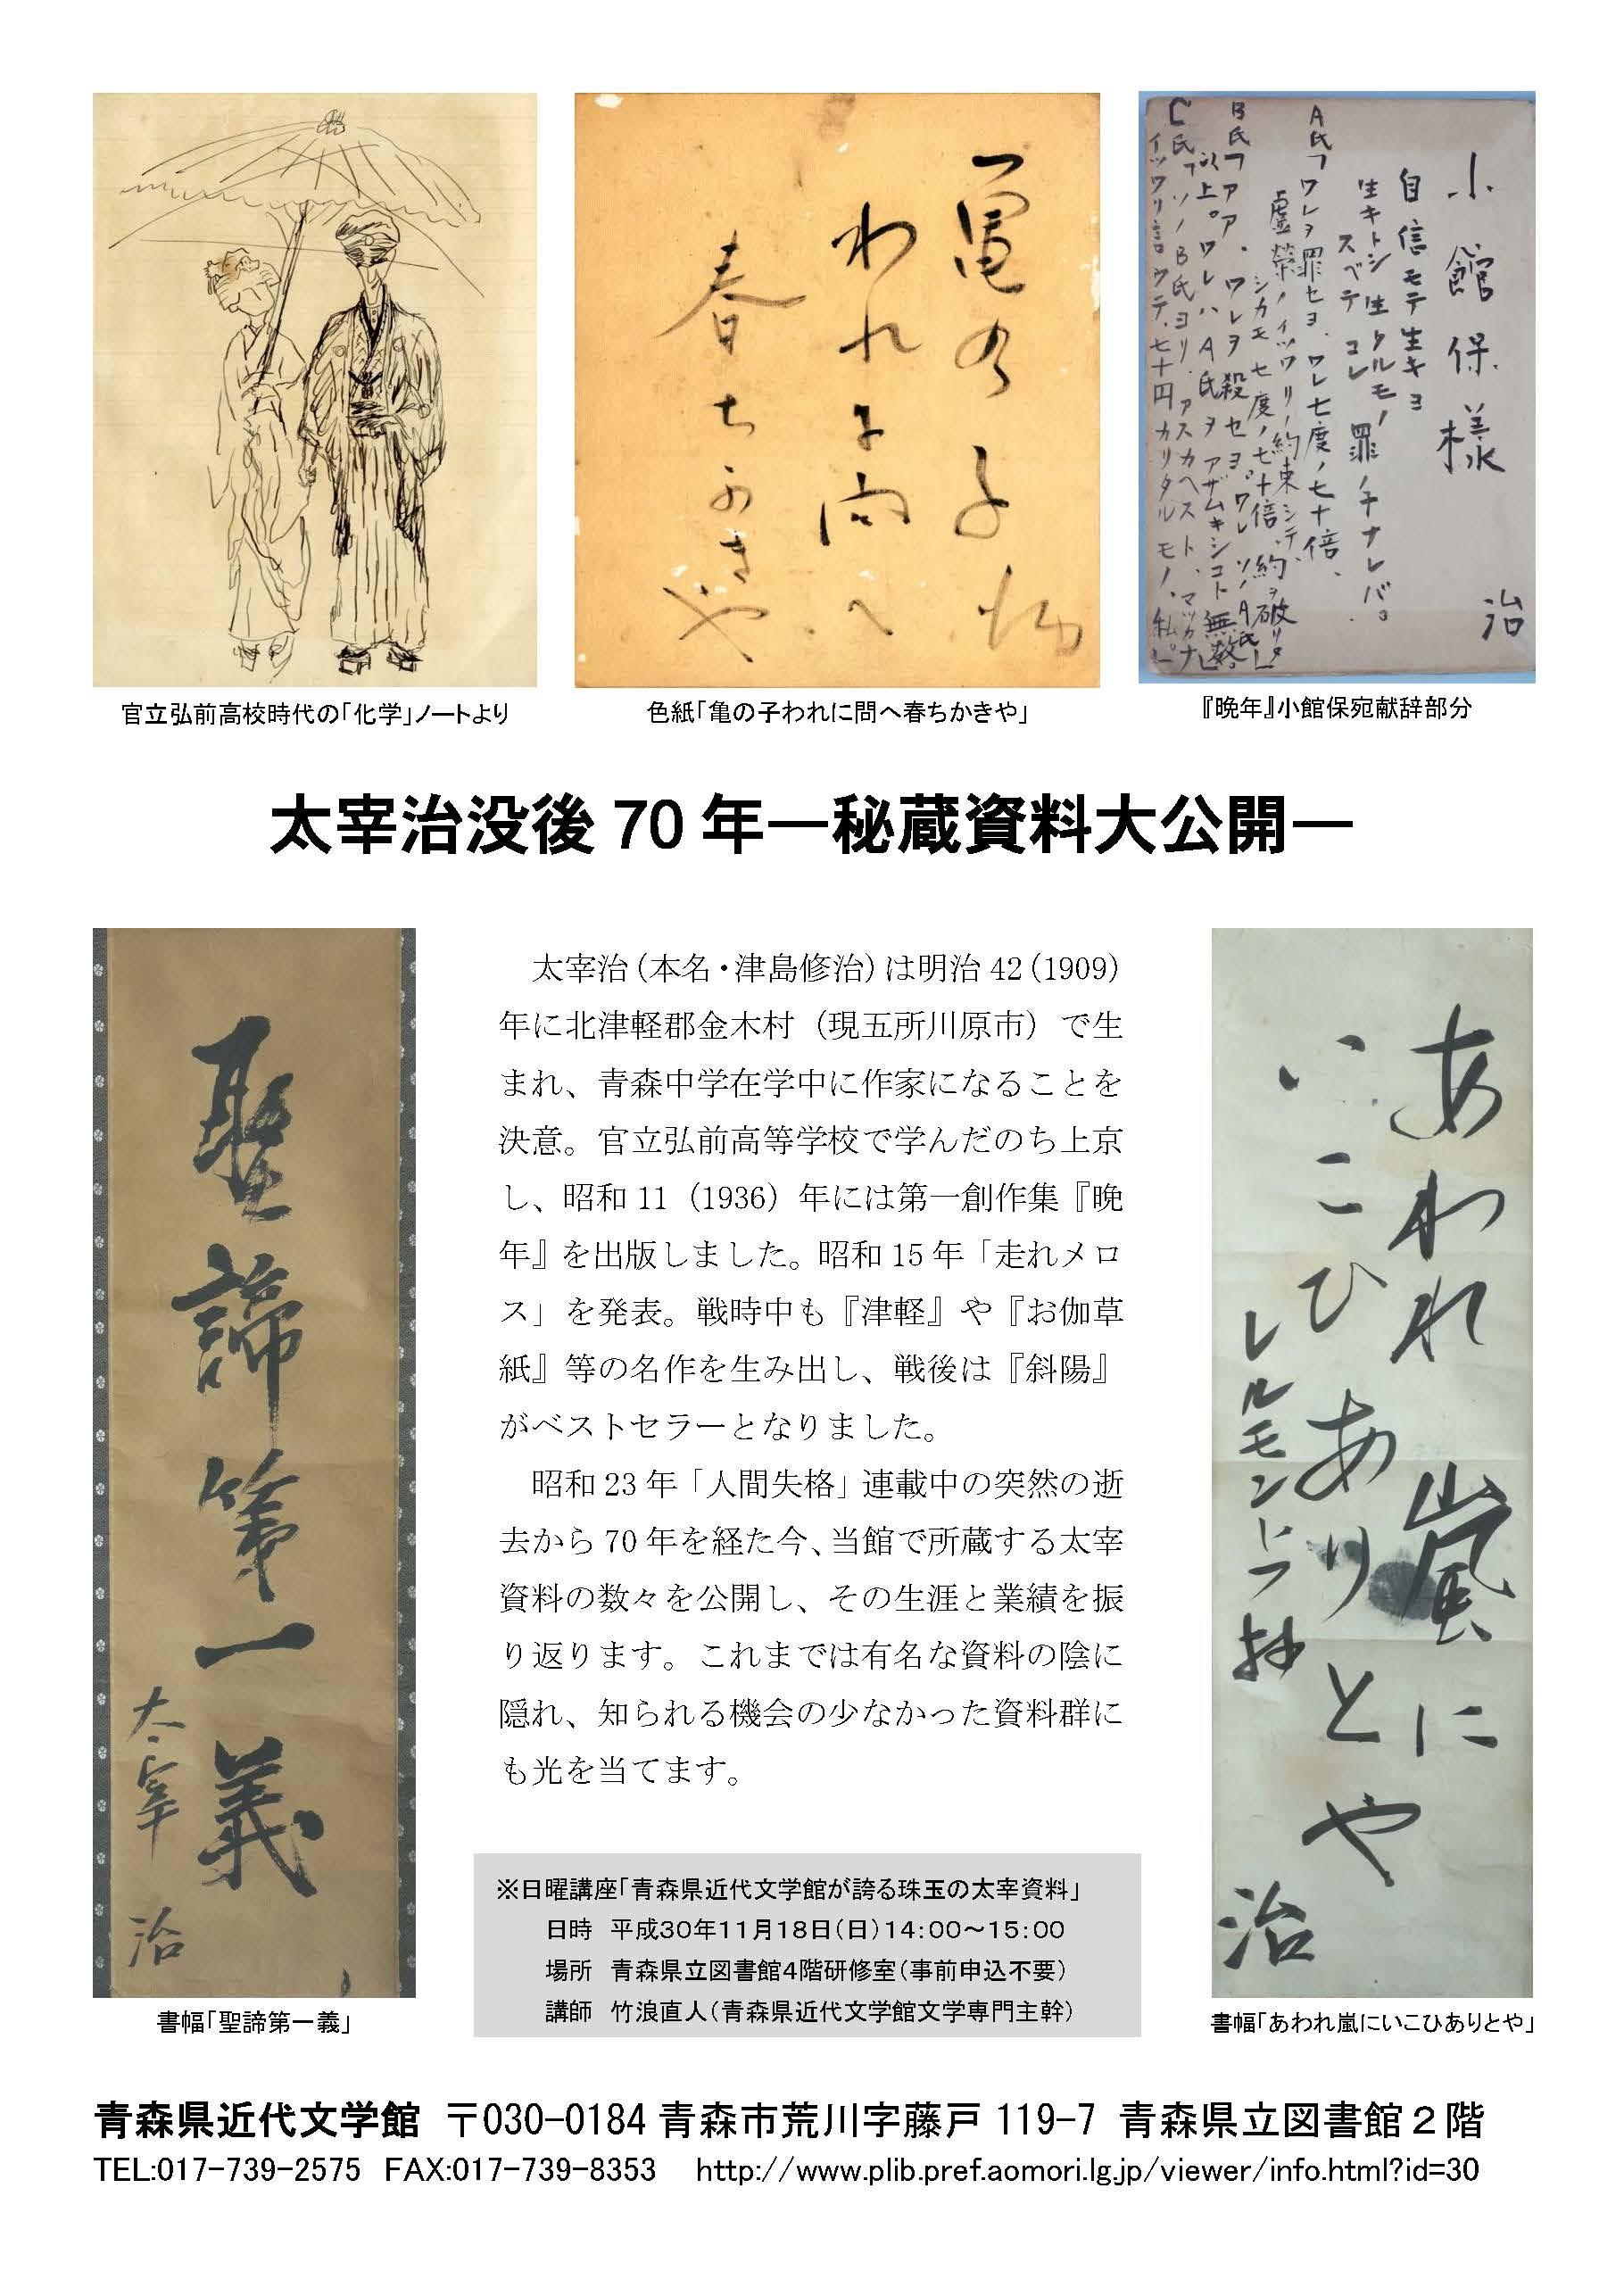 小館保様
治
自信モテ生キヨ
生キトシ生クルモノ
スベテコレ罪ノ子ナレバ。
A氏「ワレヲ罪セヨ、ワレ七度ノ七十倍、
虚栄ノイツワリノ約束シテ、
シカモ七度ノ七十倍、約ヲ破リタ
B氏「アア、ワレヲ殺セヨ。ワレソノA氏」
以上。ワレハA氏ヲアザムキシコト無数。」
C氏「ソノB氏ヨリ、アスカヘスト、マッカナ
イツワリ言ウテ、七十円カリタルモノ、私。」
亀の子
われに問へ
春ちかきや
官立弘前高校時代の「化学」ノートより
色紙「亀の子われに問へ春ちかきや」
『晩年』小館保宛献辞部分
太宰治没後 70 年―秘蔵資料大公開―
聖諦第一義
太宰治
太宰治(本名・津島修治)は明治 42(1909)
年に北津軽郡金木村(現五所川原市)で生
まれ、青森中学在学中に作家になることを
決意。官立弘前高等学校で学んだのち上京
し、昭和 11(1936)年には第一創作集『晩
年』を出版しました。昭和 15 年「走れメロ
ス」を発表。戦時中も『津軽』や『お伽草
紙』等の名作を生み出し、戦後は『斜陽』
がベストセラーとなりました。
昭和 23 年「人間失格」連載中の突然の逝
去から 70 年を経た今、当館で所蔵する太宰
資料の数々を公開し、その生涯と業績を振
り返ります。これまでは有名な資料の陰に
隠れ、知られる機会の少なかった資料群に
も光を当てます。
あわれ嵐に
いこひありとや
レルモントフ抄
治
※日曜講座「青森県近代文学館が誇る珠玉の太宰資料」
日時 平成30年11月18日(日)14:00~15:00
場所 青森県立図書館4階研修室(事前申込不要)
講師 竹浪直人(青森県近代文学館文学専門主幹)
書幅「聖諦第一義」
書幅「あわれ嵐にいこひありとや」
青森県近代文学館 〒030-0184 青森市荒川字藤戸 119-7 青森県立図書館2階
TEL:017-739-2575 FAX:017-739-8353 http://www.plib.pref.aomori.lg.jp/viewer/info.html?id=30